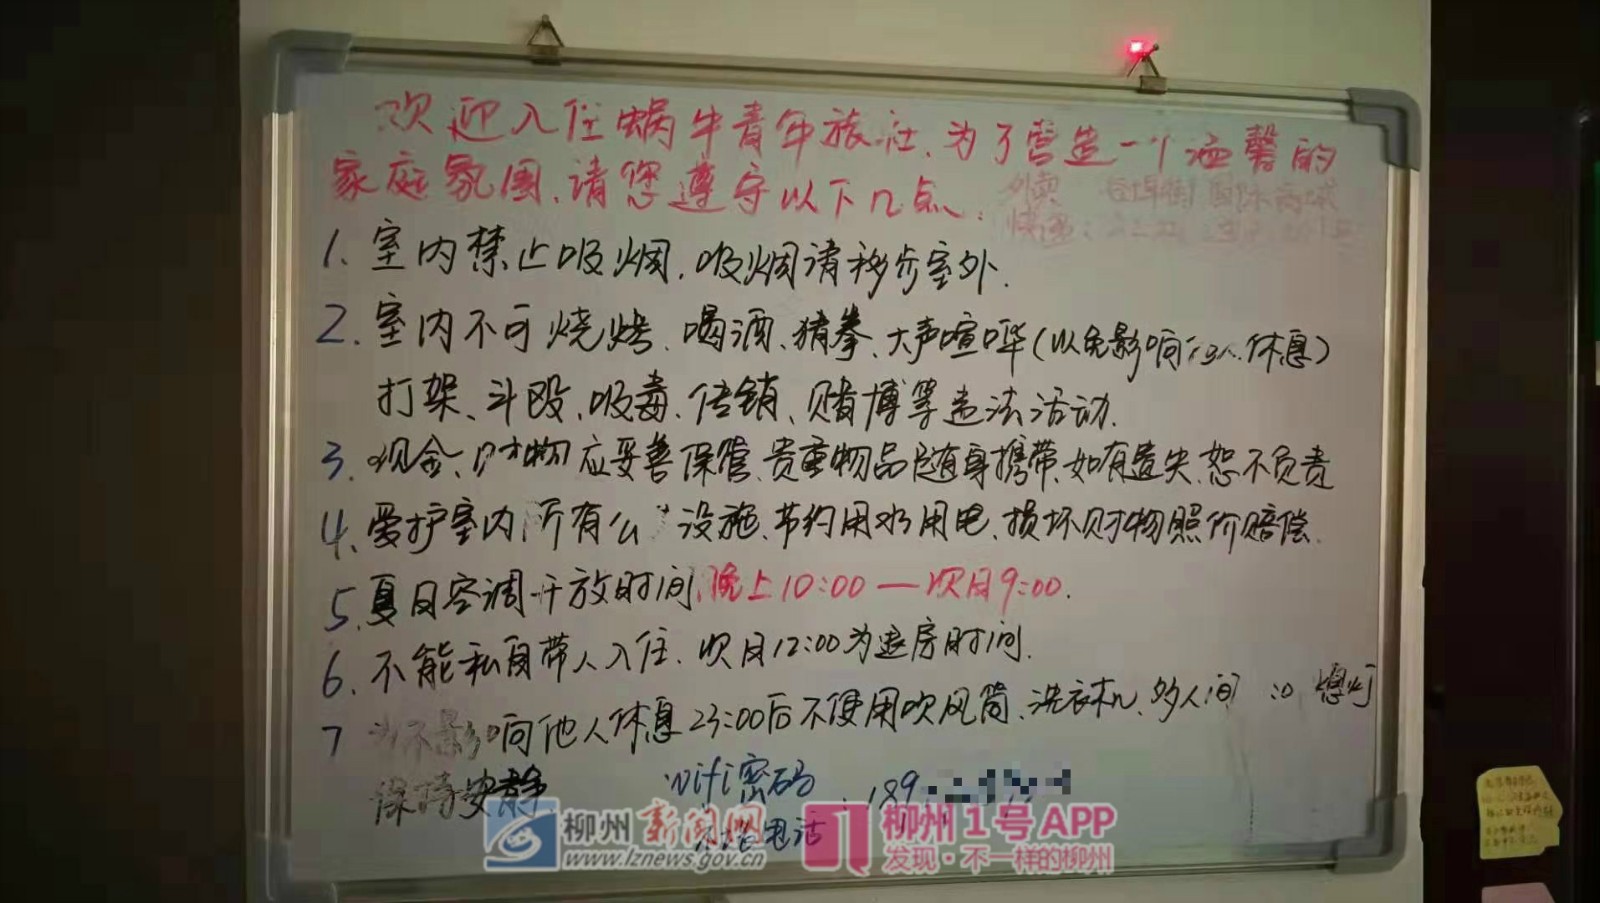 欢迎入住蜗牛青年旅社、为了营造一个温馨的
家庭氛围、请您遵守以下几点:
外卖
快递:
1. 室内禁止吸烟,吸烟请移步室外.
2. 室内不可烧烤、喝酒、猜拳、大声喧哗(以免影响他人休息)
打架、斗殴、吸毒、传销、赌博等违法活动.
3. 现金、财物应妥善保管、贵重物品随身携带、如有遗失、恕不负责
4. 爱护室内所有公 设施、节约用水用电、损坏财物照价赔偿.
5. 夏日空调开放时间晚上10:00—次日9:00.
6. 不能私自带人入住、次日12:00为退房时间.
7 为不影响他人休息23:00后不使用吹风筒、洗衣机、多人间 :0 熄灯
保持安静
wifi密码 : 189
电话
柳州新闻网
www.lznews.gov.cn
柳州1号APP
发现·不一样的柳州